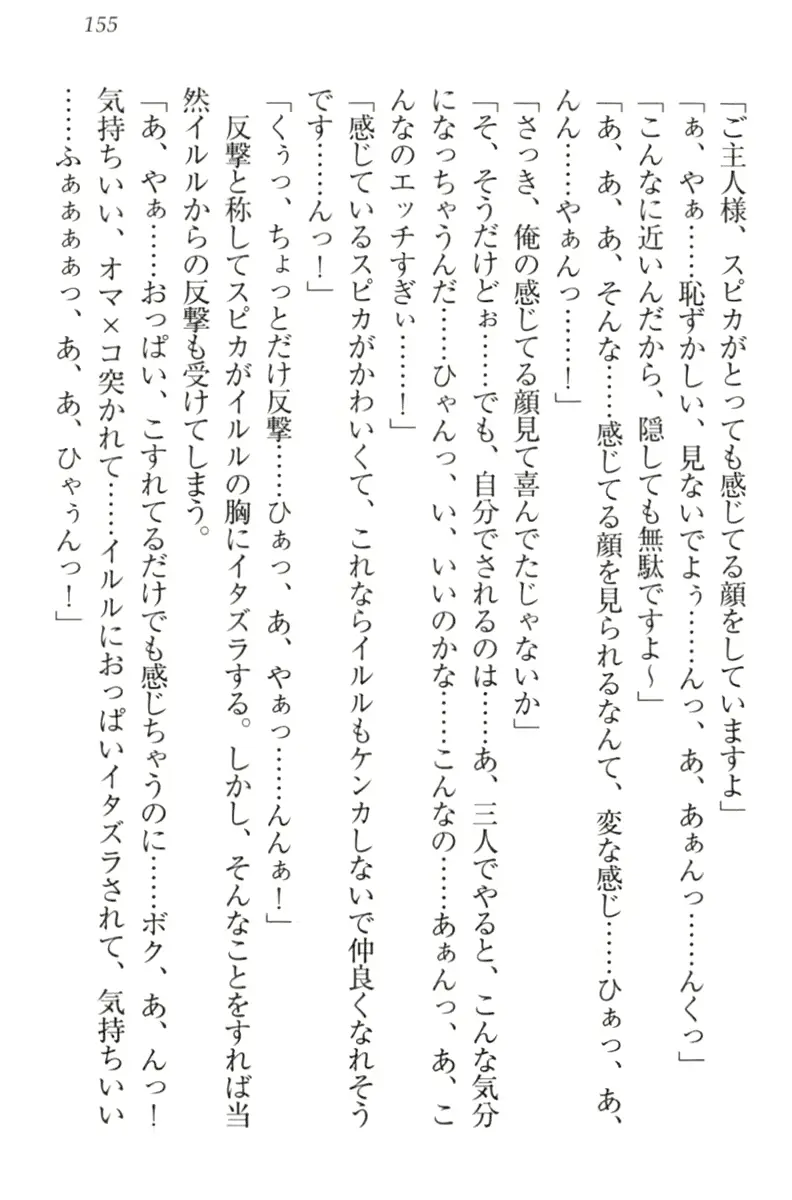 155
「ご主人様、スピカがとっても感じてる顔をしていますよ」
「ぁ、やぁ……恥ずかしい、見ないでよぅ……んっ、あ、あぁんっ……んくっ」
「こんなに近いんだから、隠しても無駄ですよ～」
「あ、あ、あ、そんな……感じてる顔を見られるなんて、変な感じ……ひぁっ、あ、
んん……やぁんっ……！」
「さっき、俺の感じてる顔見て喜んでたじゃないか」
「そ、そうだけどぉ……でも、自分でされるのは……あ、三人でやると、こんな気分
になっちゃうんだ……ひゃんっ、い、いいのかな……こんなの……あぁんっ、あ、こ
んなのエッチすぎぃ……！」
「感じているスピカがかわいくて、これならイルルもケンカしないで仲良くなれそう
です……んっ！」
「くぅっ、ちょっとだけ反撃……ひぁっ、あ、やぁっ……んんぁ！」
反撃と称してスピカがイルルの胸にイタズラする。しかし、そんなことをすれば当
然イルルからの反撃も受けてしまう。
「あ、やぁ……おっぱい、こすれてるだけでも感じちゃうのに……ボク、あ、んっ！
気持ちいい、オマ×コ突かれて……イルルにおっぱいイタズラされて、気持ちいい
……ふぁぁぁぁっ、あ、あ、ひゃぅんっ！」